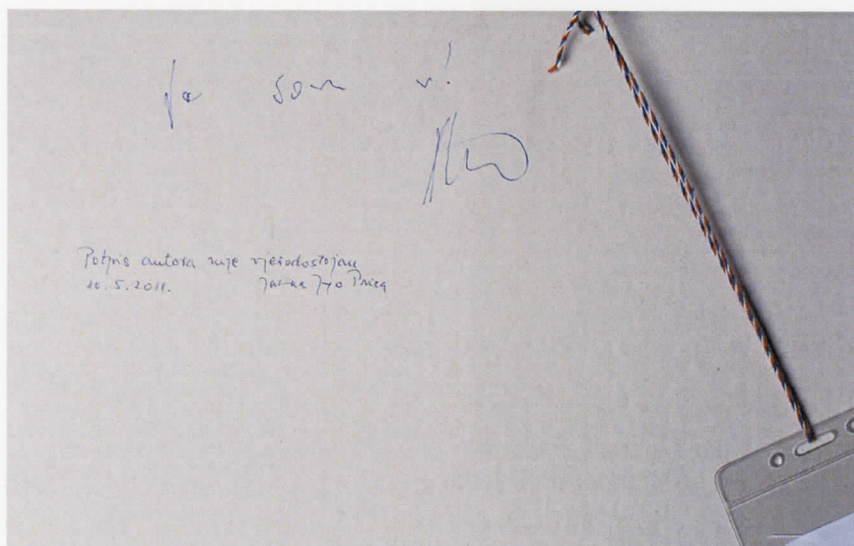 Ja sam v!
Potpis autora nije vjerodostojan
10.5.2011.